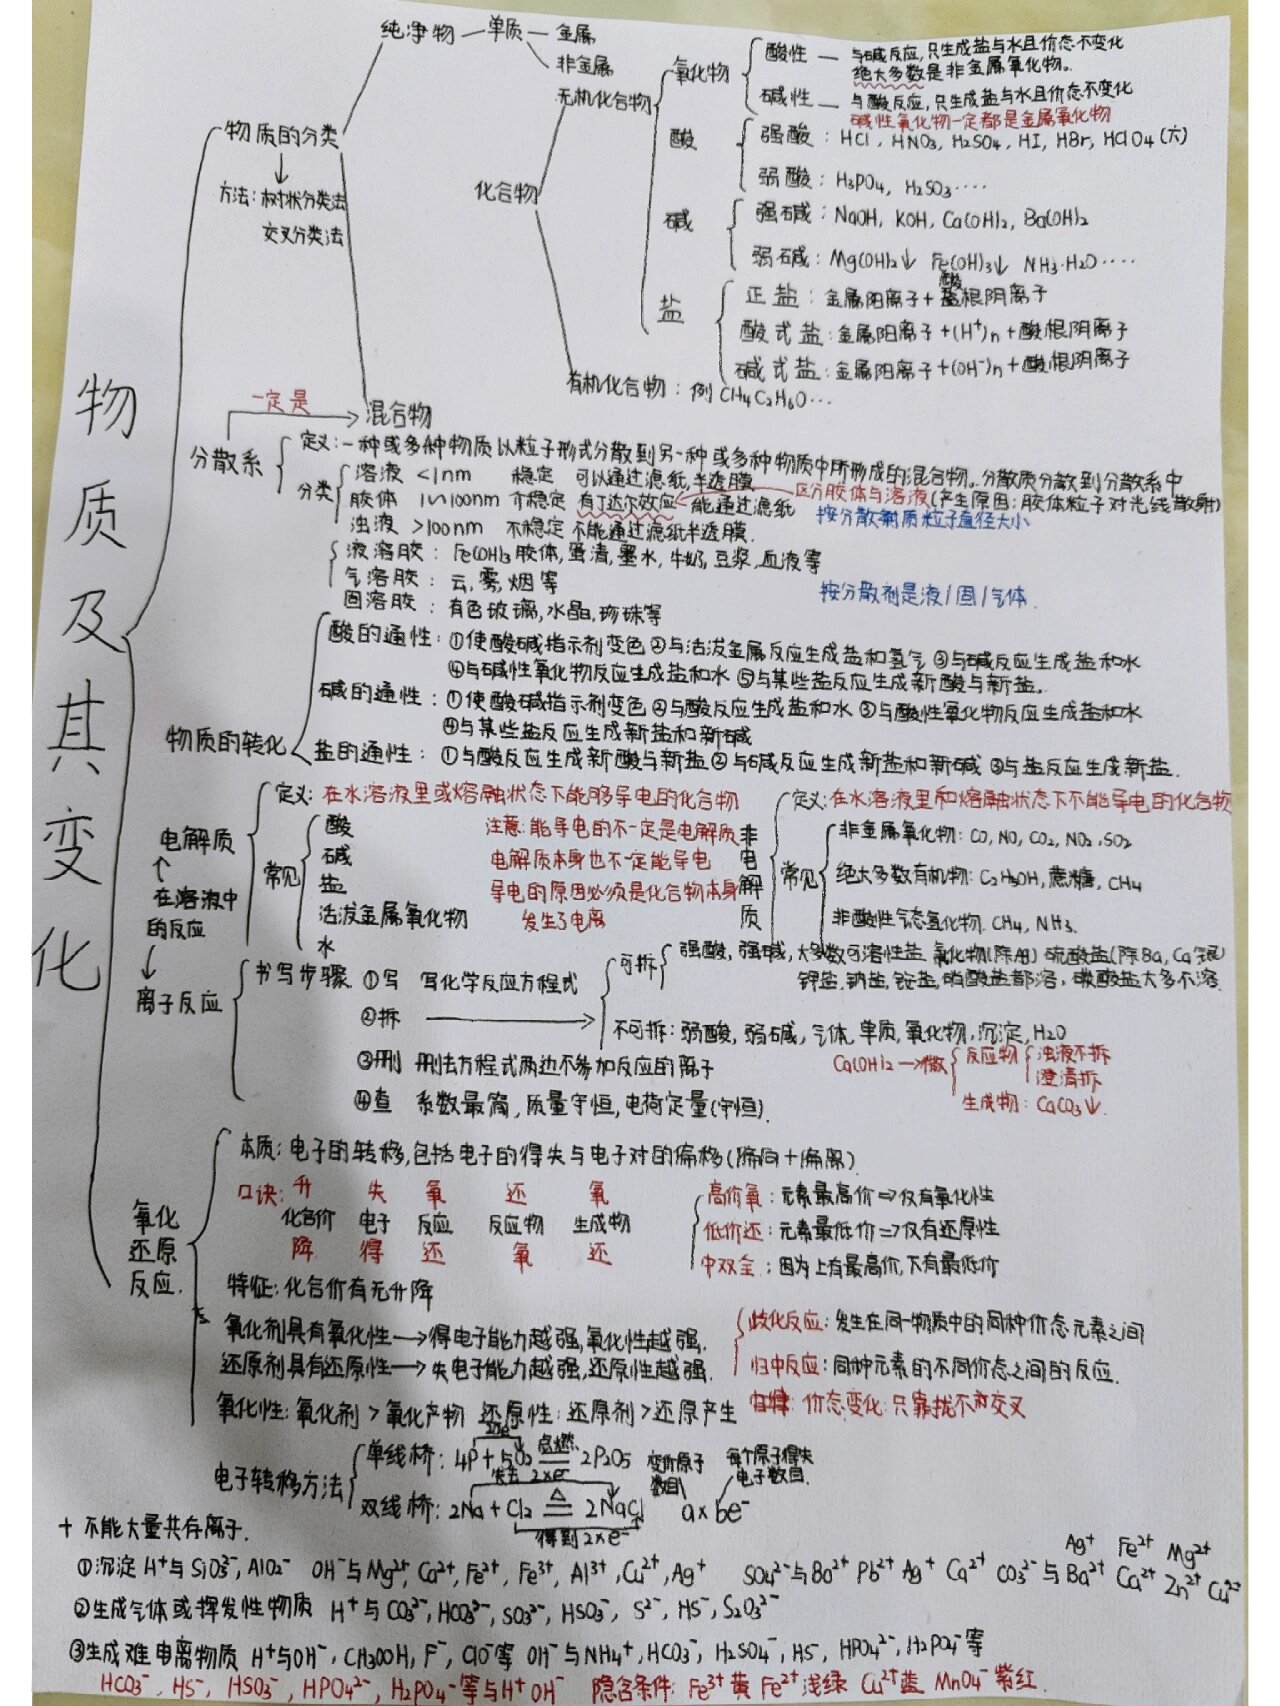 物质及其变化
纯净物 — 单质 — 金属
非金属
物质的分类
方法:树状分类法
交叉分类法
化合物
无机化合物
氧化物
酸性 — 与碱反应,只生成盐与水且价态不变化
绝大多数是非金属氧化物。
碱性 — 与酸反应,只生成盐与水且价态不变化
碱性氧化物一定都是金属氧化物
酸
强酸:HCl、HNO3、H2SO4、HI、HBr、HClO4(六)
弱酸:H3PO4、H2SO3····
碱
强碱:NaOH、KOH、Ca(OH)2、Ba(OH)2
弱碱:Mg(OH)2↓ Fe(OH)3↓ NH3·H2O····
盐
正盐:金属阳离子+酸根阴离子
酸式盐:金属阳离子+(H⁺)n+酸根阴离子
碱式盐:金属阳离子+(OH⁻)n+酸根阴离子
有机化合物:例CH4 C2H6O···
一定是
混合物
分散系
定义:一种或多种物质以粒子形式分散到另一种或多种物质中所形成的混合物。分散质分散到分散系中
分类
溶液 <1nm 稳定 可以通过滤纸,半透膜
胶体 1~100nm 介稳定 有丁达尔效应 能通过滤纸
区分胶体与溶液(产生原因:胶体粒子对光线散射)
浊液 >100nm 不稳定 不能通过滤纸半透膜.
按分散质粒子直径大小
液溶胶:Fe(OH)3胶体,蛋清,墨水,牛奶,豆浆,血液等
气溶胶:云,雾,烟等
固溶胶:有色玻璃,水晶,珍珠等
按分散剂是液/固/气体.
物质的转化
酸的通性:①使酸碱指示剂变色②与活泼金属反应生成盐和氢气③与碱反应生成盐和水
④与碱性氧化物反应生成盐和水⑤与某些盐反应生成新酸与新盐。
碱的通性:①使酸碱指示剂变色②与酸反应生成盐和水③与酸性氧化物反应生成盐和水
④与某些盐反应生成新盐和新碱
盐的通性:①与酸反应生成新酸与新盐②与碱反应生成新盐和新碱③与盐反应生成新盐.
电解质
定义:在水溶液里或熔融状态下能够导电的化合物
常见
酸
碱
盐
活泼金属氧化物
水
注意:能导电的不一定是电解质
电解质本身也不一定能导电
导电的原因必须是化合物本身
发生了电离
非电解质
定义:在水溶液里和熔融状态下不能导电的化合物
常见
非金属氧化物:CO,NO,CO2,NO2,SO2
绝大多数有机物:C2H5OH,蔗糖,CH4
非酸性气态氢化物.CH4,NH3.
在溶液中的反应
离子反应
书写步骤
①写 写化学反应方程式
②拆
可拆
强酸,强碱,大多数可溶性盐 氯化物(除Ag)硫酸盐(除Ba,Ca银)
钾盐.钠盐,铵盐,硝酸盐都溶,碳酸盐大多不溶.
不可拆:弱酸,弱碱,气体,单质,氧化物,沉淀,H2O
③删 删去方程式两边不参加反应的离子
Ca(OH)2→微
反应物
浊液不拆
澄清拆
生成物:CaCO3↓
④查 系数最简,质量守恒,电荷定量(守恒).
氧化还原反应.
本质:电子的转移,包括电子的得失与电子对的偏移(偏向+偏离)
口诀:升 失 氧 还 氧
化合价 电子 反应 反应物 生成物
降 得 还 氧 还
高价氧:元素最高价⇒仅有氧化性
低价还:元素最低价⇒仅有还原性
中双全:因为上有最高价,下有最低价
特征:化合价有无升降
氧化剂具有氧化性→得电子能力越强,氧化性越强.
还原剂具有还原性→失电子能力越强,还原性越强.
歧化反应:发生在同一物质中的同种价态元素之间
归中反应:同种元素的不同价态之间的反应.
价态变化:只靠拢不交叉
氧化性:氧化剂>氧化产物 还原性:还原剂>还原产生
电子转移方法
单线桥:4P+5O2 点燃 2P2O5
20e⁻
变价原子数目
每个原子得失电子数目.
双线桥:2Na+Cl2 △ 2NaCl a×be⁻
失去2×e⁻
得到2×e⁻
+ 不能大量共存离子.
①沉淀 H⁺与SiO3²⁻,AlO2⁻ OH⁻与Mg²⁺,Ca²⁺,Fe²⁺,Fe³⁺,Al³⁺,Cu²⁺,Ag⁺ SO4²⁻与Ba²⁺ Pb²⁺ Ag⁺ Ca²⁺ CO3²⁻与Ba²⁺ Ca²⁺ Zn²⁺ Cu²⁺
Ag⁺ Fe²⁺ Mg²⁺
②生成气体或挥发性物质 H⁺与CO3²⁻,HCO3⁻,SO3²⁻,HSO3⁻,S²⁻,HS⁻,S2O3²⁻
③生成难电离物质 H⁺与OH⁻,CH3OOH,F⁻,ClO⁻等 OH⁻与NH4⁺,HCO3⁻,H2SO4⁻,HS⁻,HPO4²⁻,H2PO4⁻等
HCO3⁻,HS⁻,HSO3⁻,HPO4²⁻,H2PO4⁻等与H⁺OH⁻ 隐含条件:Fe³⁺黄 Fe²⁺浅绿 Cu²⁺蓝 MnO4⁻紫红.